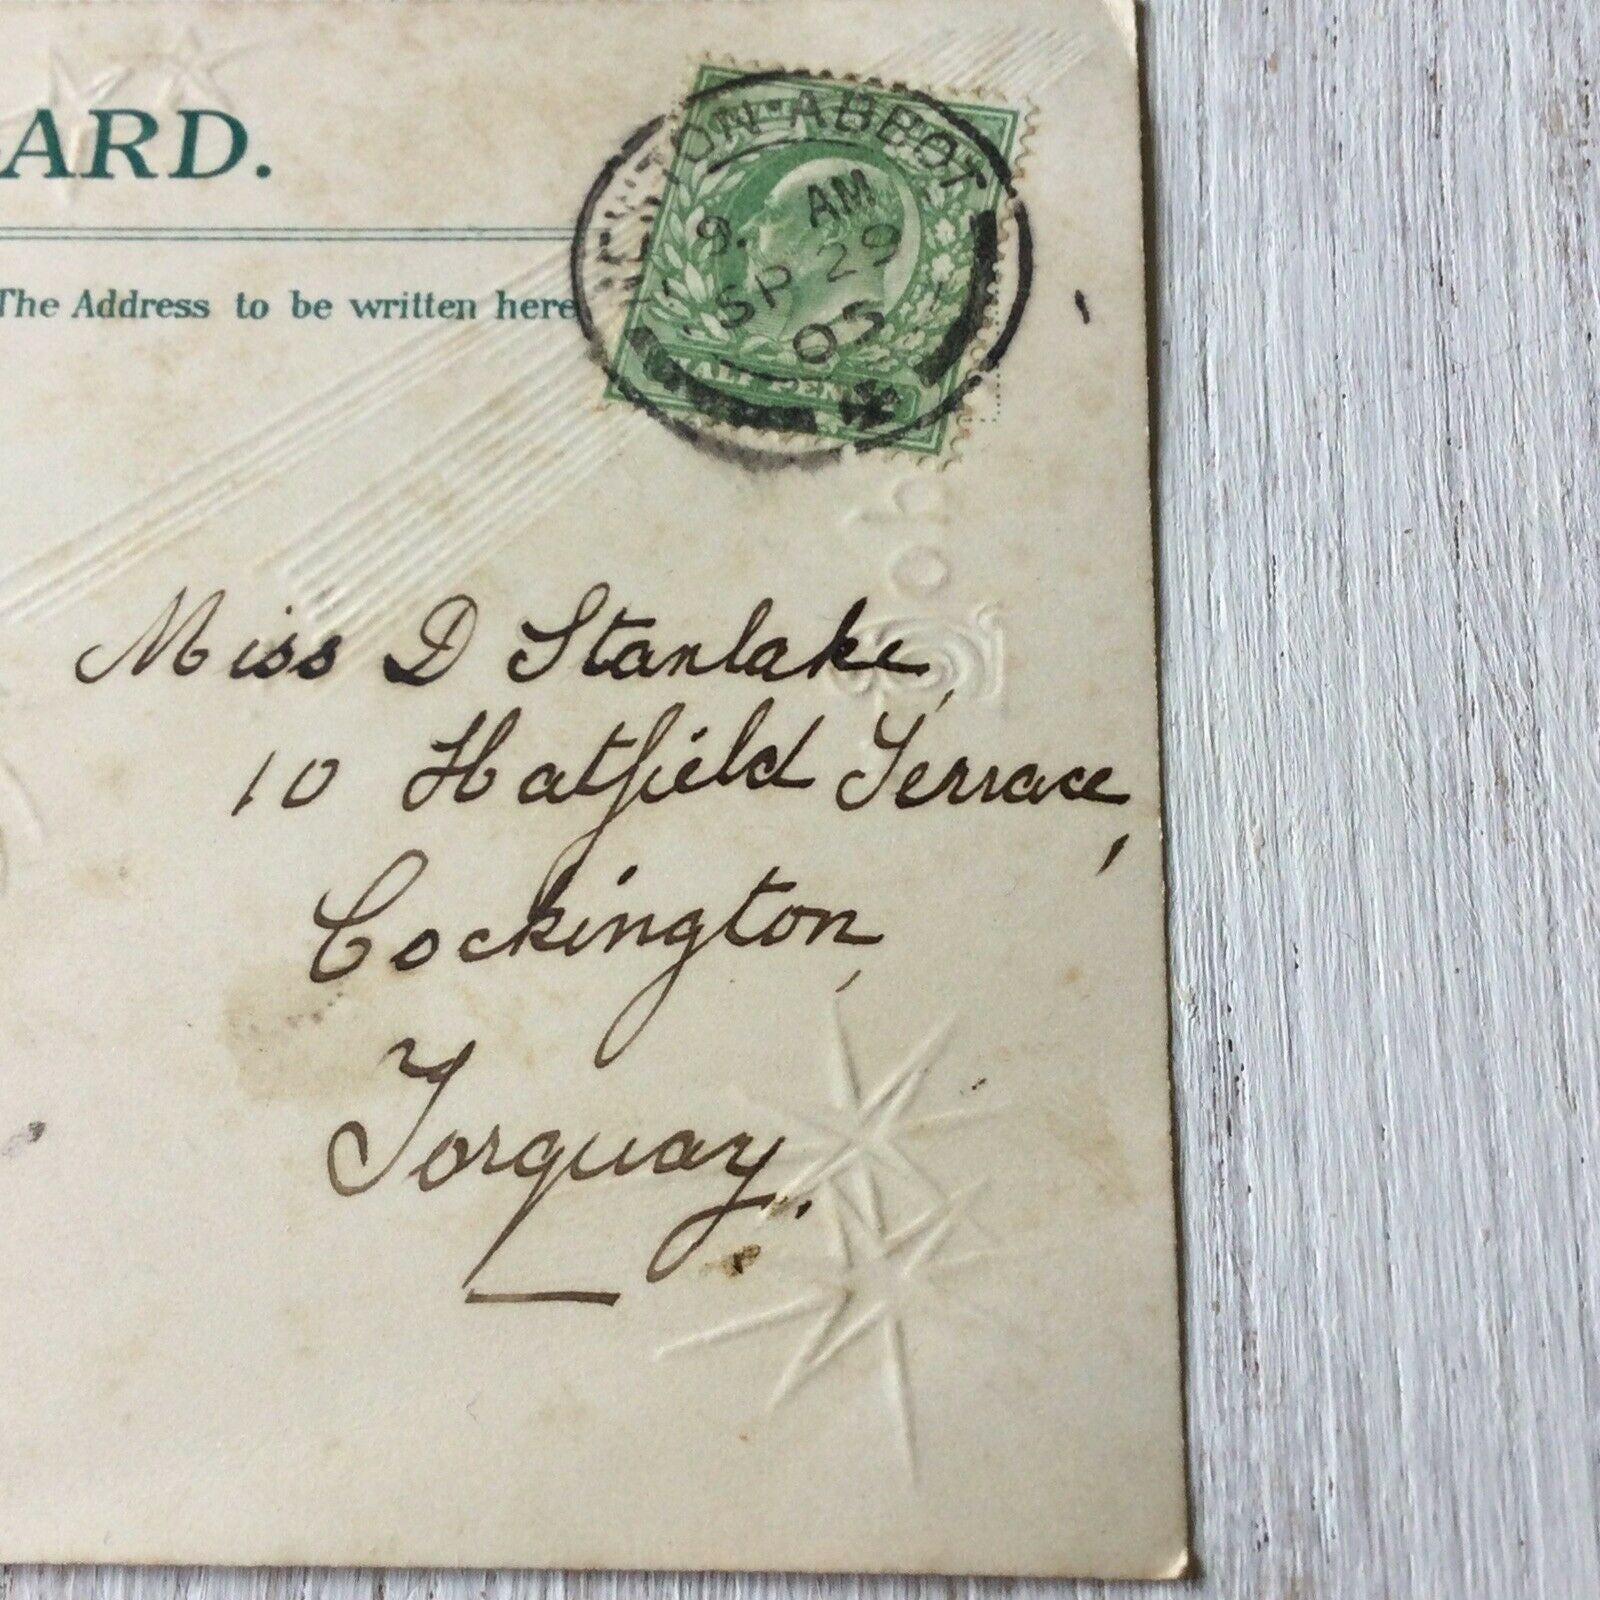 ARD.
The Address to be written here
NEWTON·ABBOT
9. AM
SP 29
05
HALFPENNY
Miss D Stanlake,
10 Hatfield Terrace,
Cockington,
Torquay.